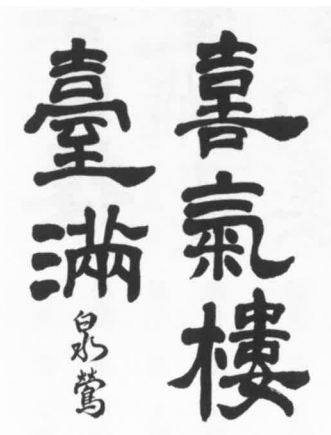 喜氣樓
臺滿
泉鶯